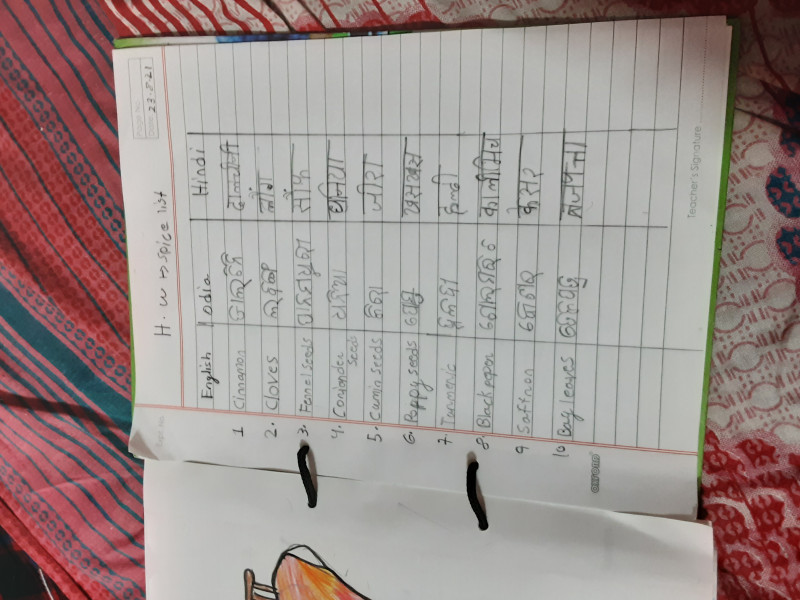 Page No.
Date 23.8.21
H.W → spice list
English Odia Hindi
1 Cinnamon ଡାଲଚିନି दालचीनी
2. Cloves ଲବଙ୍ଗ लौंग
3. Fennel seeds ପାନମଧୁରୀ सौंफ
4. Coriander seeds ଧନିଆ धनिया
5. Cumin seeds ଜିରା जीरा
6. Poppy seeds ପୋସ୍ତ खसखस
7 Turmeric ହଳଦୀ हल्दी
8. Black pepper ଗୋଲମରିଚ कालीमिर्च
9 Saffron କେଶର केसर
10 Bay leaves ତେଜପତ୍ର तेजपत्ता
OXFORD
Teacher's Signature